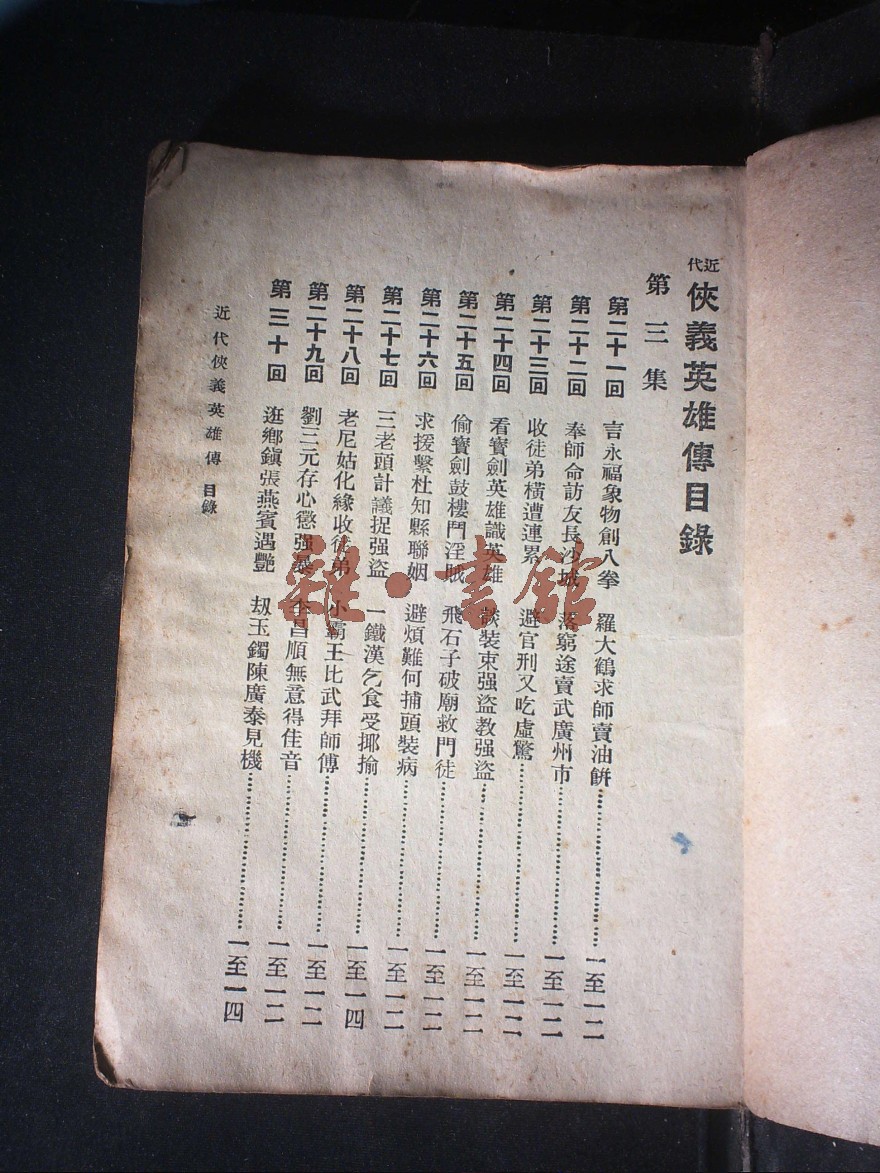 近代俠義英雄傳目錄
第三集
第二十一回 言永福象物創八拳 羅大鶴求師賣油餅……一至一二
第二十二回 奉師命訪友長沙城 落窮途賣武廣州市……一至一二
第二十三回 收徒弟橫遭連累 避官刑又吃虛驚……一至一二
第二十四回 看寶劍英雄識英雄 談裝束强盜教强盜……一至一二
第二十五回 偷寶劍鼓樓鬥淫賊 飛石子破廟救門徒……一至一二
第二十六回 求援繫杜知縣聯姻 避煩難何捕頭裝病……一至一二
第二十七回 三老頭計議捉强盜 一鐵漢乞食受揶揄……一至一二
第二十八回 老尼姑化緣收徒弟 小霸王比武拜師傅……一至一四
第二十九回 劉三元存心懲强暴 李昌順無意得佳音……一至一二
第三十回 逛鄉鎮張燕賓遇艷 劫玉鐲陳廣泰見機……一至一四
近代俠義英雄傳 目錄
雜·書館